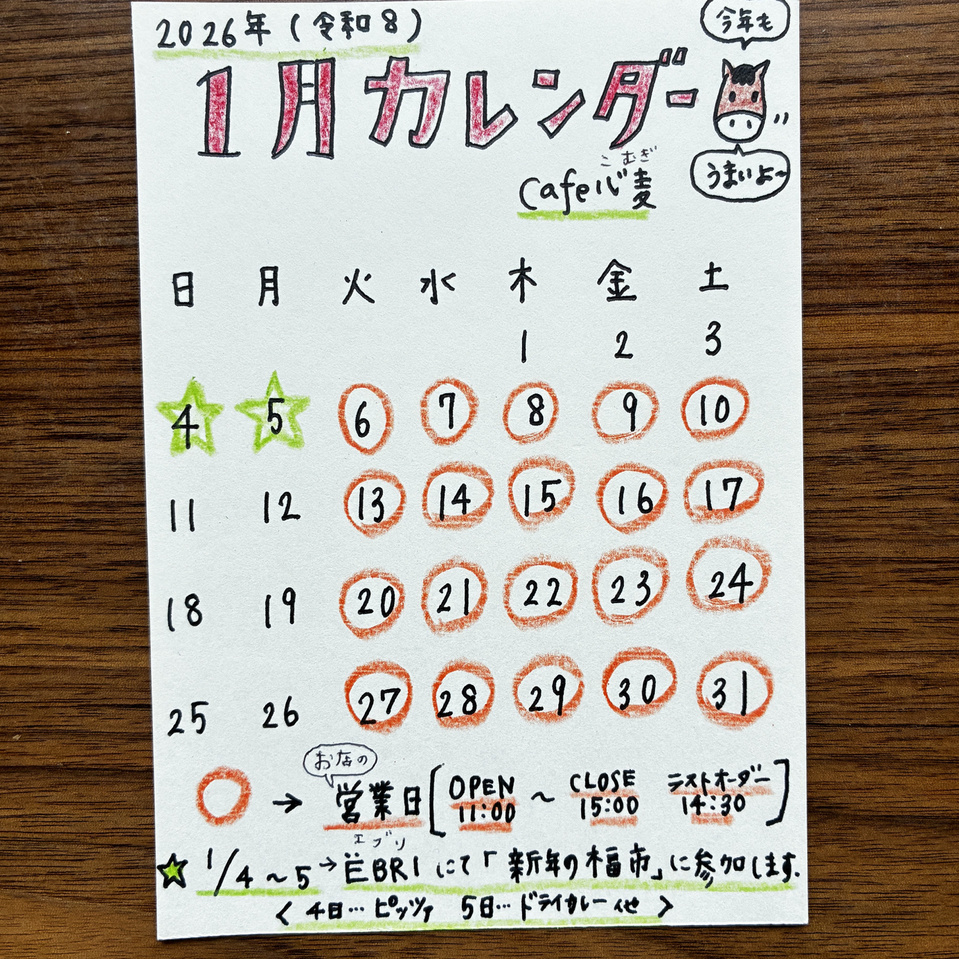 2026年(令和8)
今年も
1月カレンダー
うまいよ〜
こむぎ
Cafe心麦
日 月 火 水 木 金 土
1 2 3
4 5 6 7 8 9 10
11 12 13 14 15 16 17
18 19 20 21 22 23 24
25 26 27 28 29 30 31
お店の
→ 営業日[OPEN 11:00 〜 CLOSE 15:00 ラストオーダー 14:30]
エブリ
★1/4〜5→ËBRIにて「新年の福市」に参加します.
〈4日…ピッツァ 5日…ドライカレー他〉